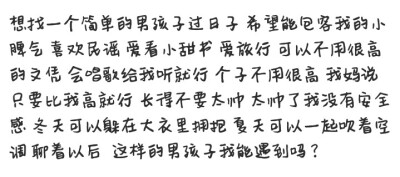 想找一个简单的男孩子过日子 希望能包容我的小
脾气 喜欢民谣 爱看小甜书 爱旅行 可以不用很高
的文凭 会唱歌给我听就行 个子不用很高 我妈说
只要比我高就行 长得不要太帅 太帅了我没有安全
感 冬天可以躲在大衣里拥抱 夏天可以一起吹着空
调 聊着以后 这样的男孩子我能遇到吗？